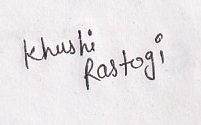 Khushi
Rastogi